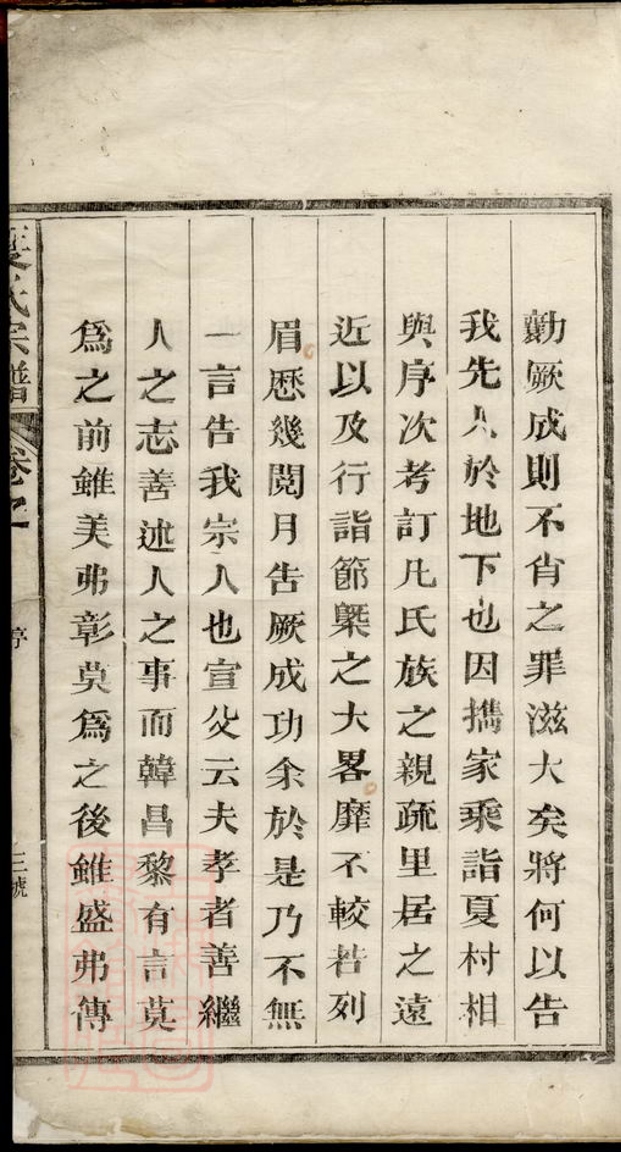 勷厥成則不肖之罪滋大矣將何以告
我先人於地下也因擕家乘詣夏村相
與序次考訂凡氏族之親疏里居之遠
近以及行詣節槩之大畧靡不較若列
眉歷幾閱月告厥成功余於是乃不無
一言告我宗人也宣父云夫孝者善繼
人之志善述人之事而韓昌黎有言莫
爲之前雖美弗彰莫爲之後雖盛弗傳
氏宗譜
卷之一
序
三號